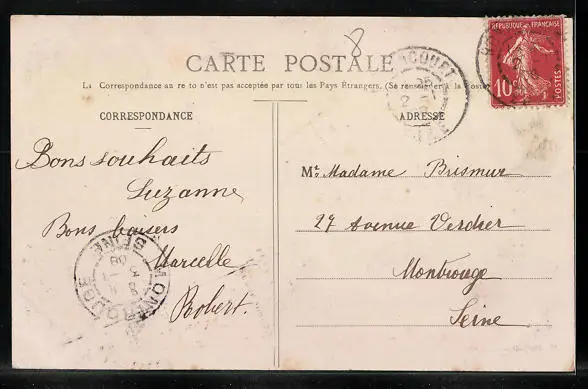 8
CARTE POSTALE
La Correspondance au re to n'est pas acceptée par tous les Pays Étrangers. (Se renseigner à la Poste)
CORRESPONDANCE
ADRESSE
RÉPUBLIQUE FRANÇAISE
10
POSTES
Bons souhaits
Suzanne
Bons baisers
Marcelle
Robert.
MONTROUGE
SEINE
Mr. Madame Brismur
27 Avenue Verdier
Montrouge
Seine